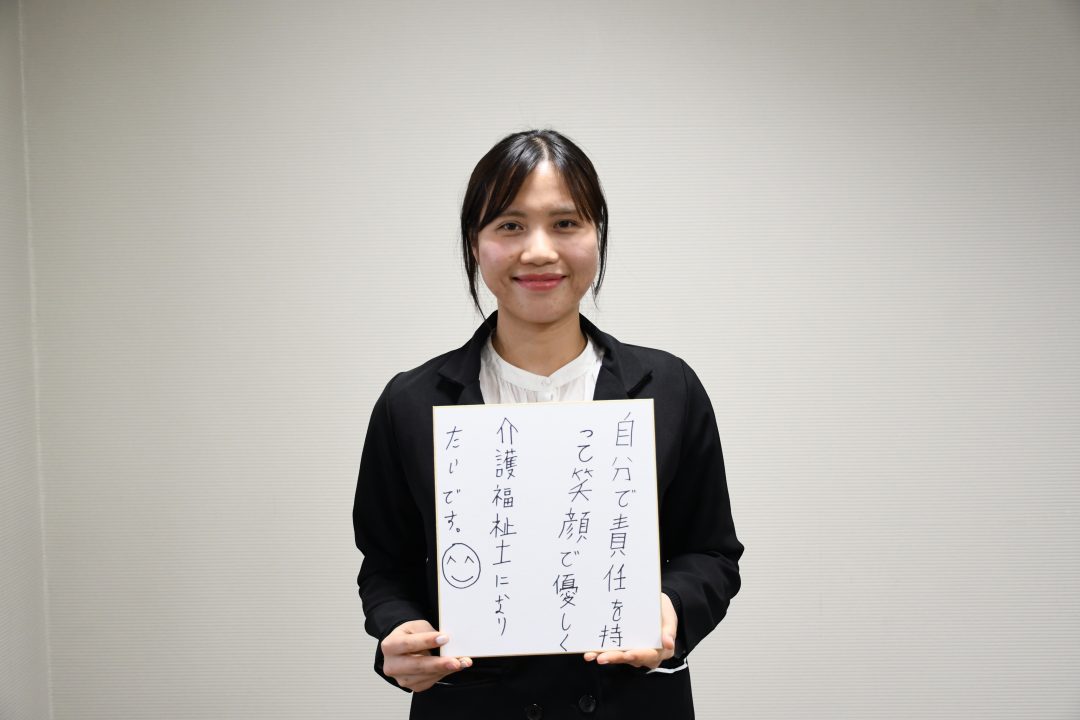 自分で責任を持
って笑顔で優しく
介護福祉士になり
たいです。